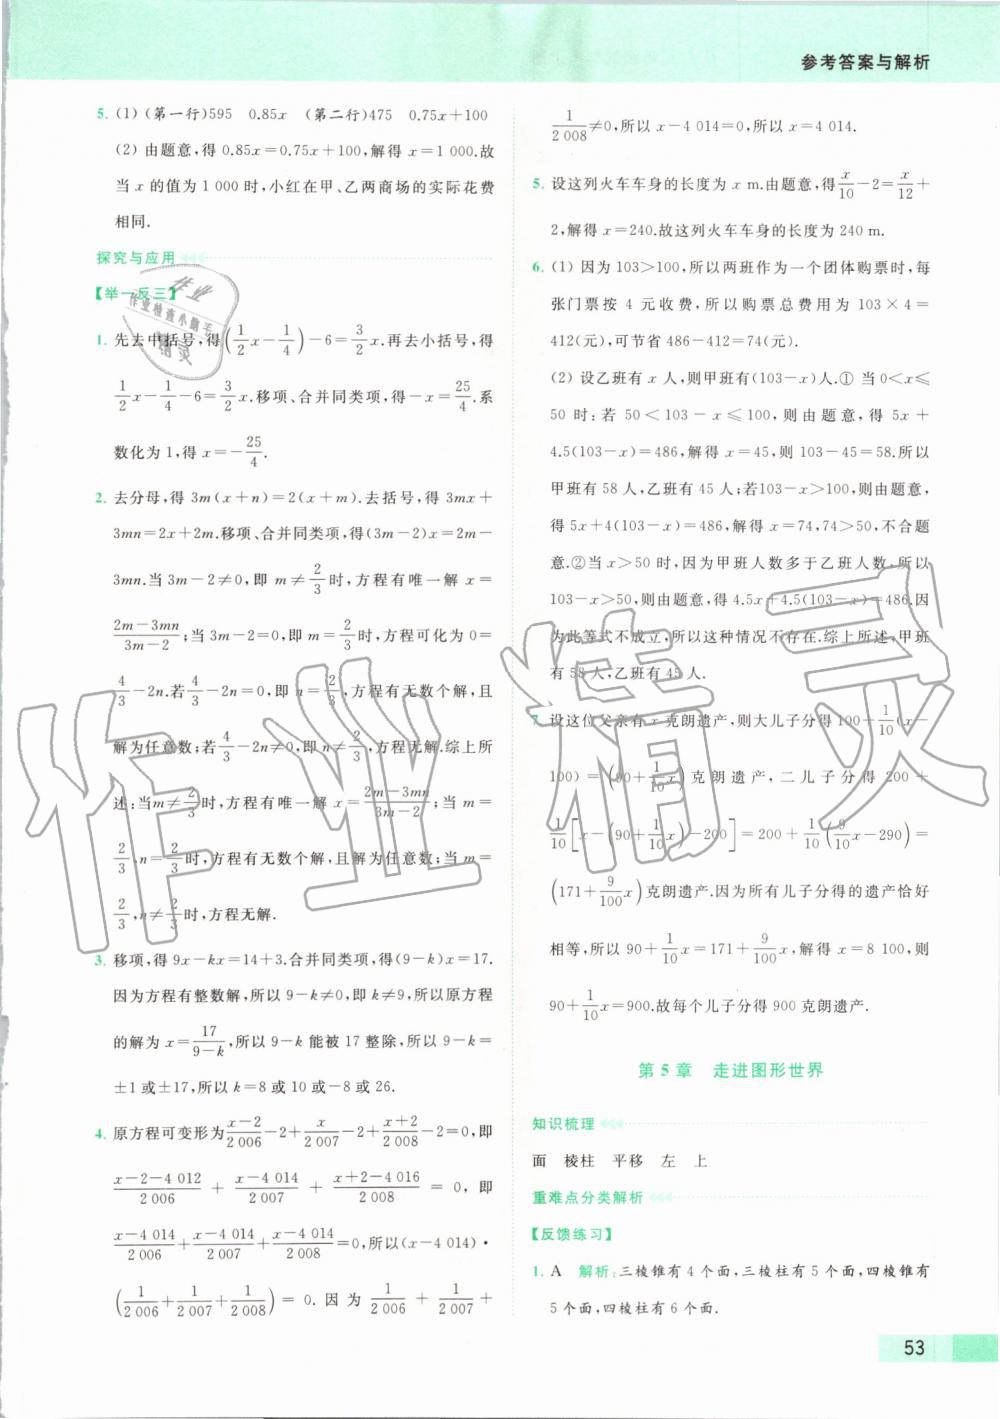 参考答案与解析
5. (1) (第一行)595 0.85x (第二行)475 0.75x+100
(2) 由题意,得 0.85x=0.75x+100,解得 x=1 000.故
当 x 的值为 1 000 时,小红在甲、乙两商场的实际花费
相同.
探究与应用
【举一反三】
1. 先去中括号,得(1/2x-1/4)-6=3/2x.再去小括号,得
1/2x-1/4-6=3/2x.移项、合并同类项,得-x=25/4.系
数化为 1,得 x=-25/4.
2. 去分母,得 3m(x+n)=2(x+m).去括号,得 3mx+
3mn=2x+2m.移项、合并同类项,得(3m-2)x=2m-
3mn.当 3m-2≠0,即 m≠2/3时,方程有唯一解 x=
2m-3mn/3m-2;当 3m-2=0,即 m=2/3时,方程可化为 0=
4/3-2n.若4/3-2n=0,即 n=2/3,方程有无数个解,且
解为任意数;若4/3-2n≠0,即 n≠2/3,方程无解.综上所
述:当m≠2/3时,方程有唯一解 x=2m-3mn/3m-2;当 m=
2/3,n=2/3时,方程有无数个解,且解为任意数;当 m=
2/3,n≠2/3时,方程无解.
3. 移项,得 9x-kx=14+3.合并同类项,得(9-k)x=17.
因为方程有整数解,所以 9-k≠0,即 k≠9,所以原方程
的解为 x=17/9-k,所以 9-k 能被 17 整除,所以 9-k=
±1或±17,所以 k=8 或 10 或-8 或 26.
4. 原方程可变形为x-2/2 006-2+x/2 007-2+x+2/2 008-2=0,即
x-2-4 012/2 006 + x-4 014/2 007 + x+2-4 016/2 008 = 0,即
x-4 014/2 006+x-4 014/2 007+x-4 014/2 008=0,所以(x-4 014)·
(1/2 006+1/2 007+1/2 008)=0.因为 1/2 006 + 1/2 007 +
1/2 008≠0,所以 x-4 014=0,所以 x=4 014.
5. 设这列火车车身的长度为 x m.由题意,得x/10-2=x/12+
2,解得 x=240.故这列火车车身的长度为 240 m.
6. (1) 因为 103>100,所以两班作为一个团体购票时,每
张门票按 4 元收费,所以购票总费用为 103×4=
412(元),可节省 486-412=74(元).
(2) 设乙班有 x 人,则甲班有(103-x)人.① 当 0<x≤
50 时:若 50<103-x≤100,则由题意,得 5x+
4.5(103-x)=486,解得 x=45,则 103-45=58.所以
甲班有 58 人,乙班有 45 人;若103-x>100,则由题意,
得 5x+4(103-x)=486,解得 x=74,74>50,不合题
意.②当 x>50 时,因为甲班人数多于乙班人数,所以
103-x>50,则由题意,得 4.5x+4.5(103-x)=486.因
为此等式不成立,所以这种情况不存在.综上所述,甲班
有 58 人,乙班有 45 人.
7. 设这位父亲有 x 克朗遗产,则大儿子分得 100+1/10(x-
100)=(90+1/10x)克朗遗产,二儿子分得 200+
1/10[x-(90+1/10x)-200]=200+1/10(9/10x-290)=
(171+9/100x)克朗遗产.因为所有儿子分得的遗产恰好
相等,所以 90+1/10x=171+9/100x,解得 x=8 100,则
90+1/10x=900.故每个儿子分得 900 克朗遗产.
第 5 章 走进图形世界
知识梳理
面 棱柱 平移 左 上
重难点分类解析
【反馈练习】
1. A 解析:三棱锥有 4 个面,三棱柱有 5 个面,四棱锥有
5 个面,四棱柱有 6 个面.
53
作业精灵